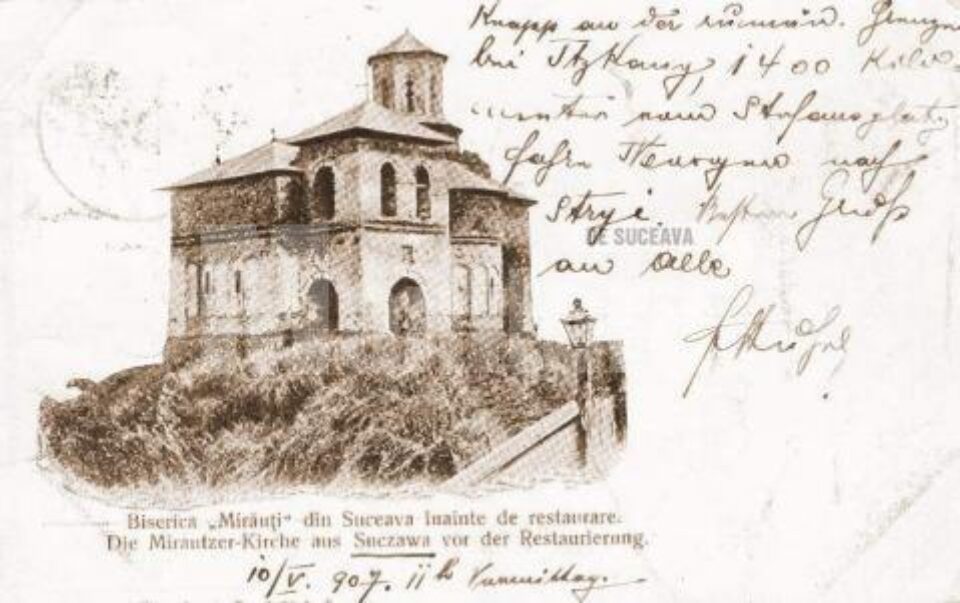 Knapp an der rumän. Grenze
bei Itzkany, 1400 Kilo-
meter vom Stefansplatz
fahre Morgen nach
Stryi. Gruß
an alle
DE SUCEAVA
Biserica „Mirăuți“ din Suceava înainte de restaurare.
Die Mirautzer-Kirche aus Suczawa vor der Restaurierung.
10/V. 907. 11h Vormittag.